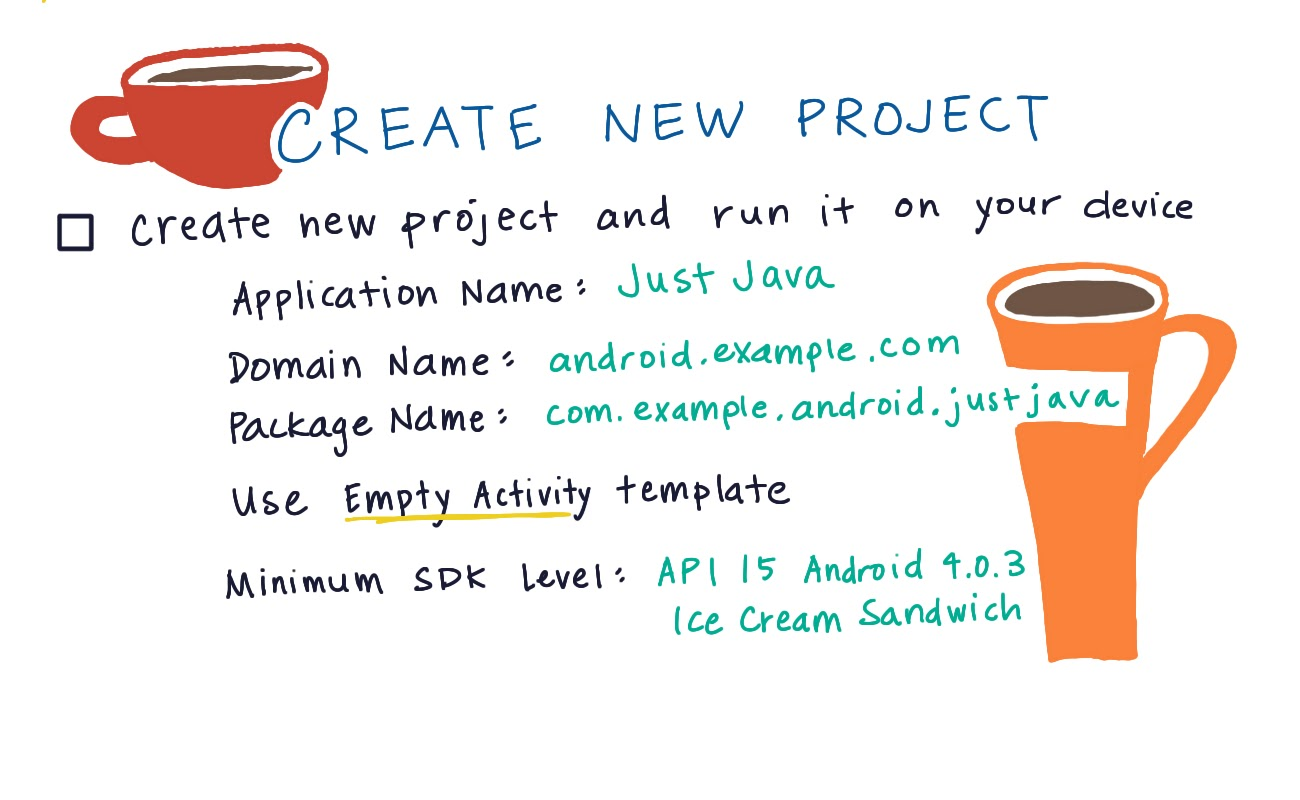 CREATE NEW PROJECT
create new project and run it on your device
Application Name: Just Java
Domain Name: android.example.com
Package Name: com.example.android.justjava
Use Empty Activity template
Minimum SDK Level: API 15 Android 4.0.3
Ice Cream Sandwich